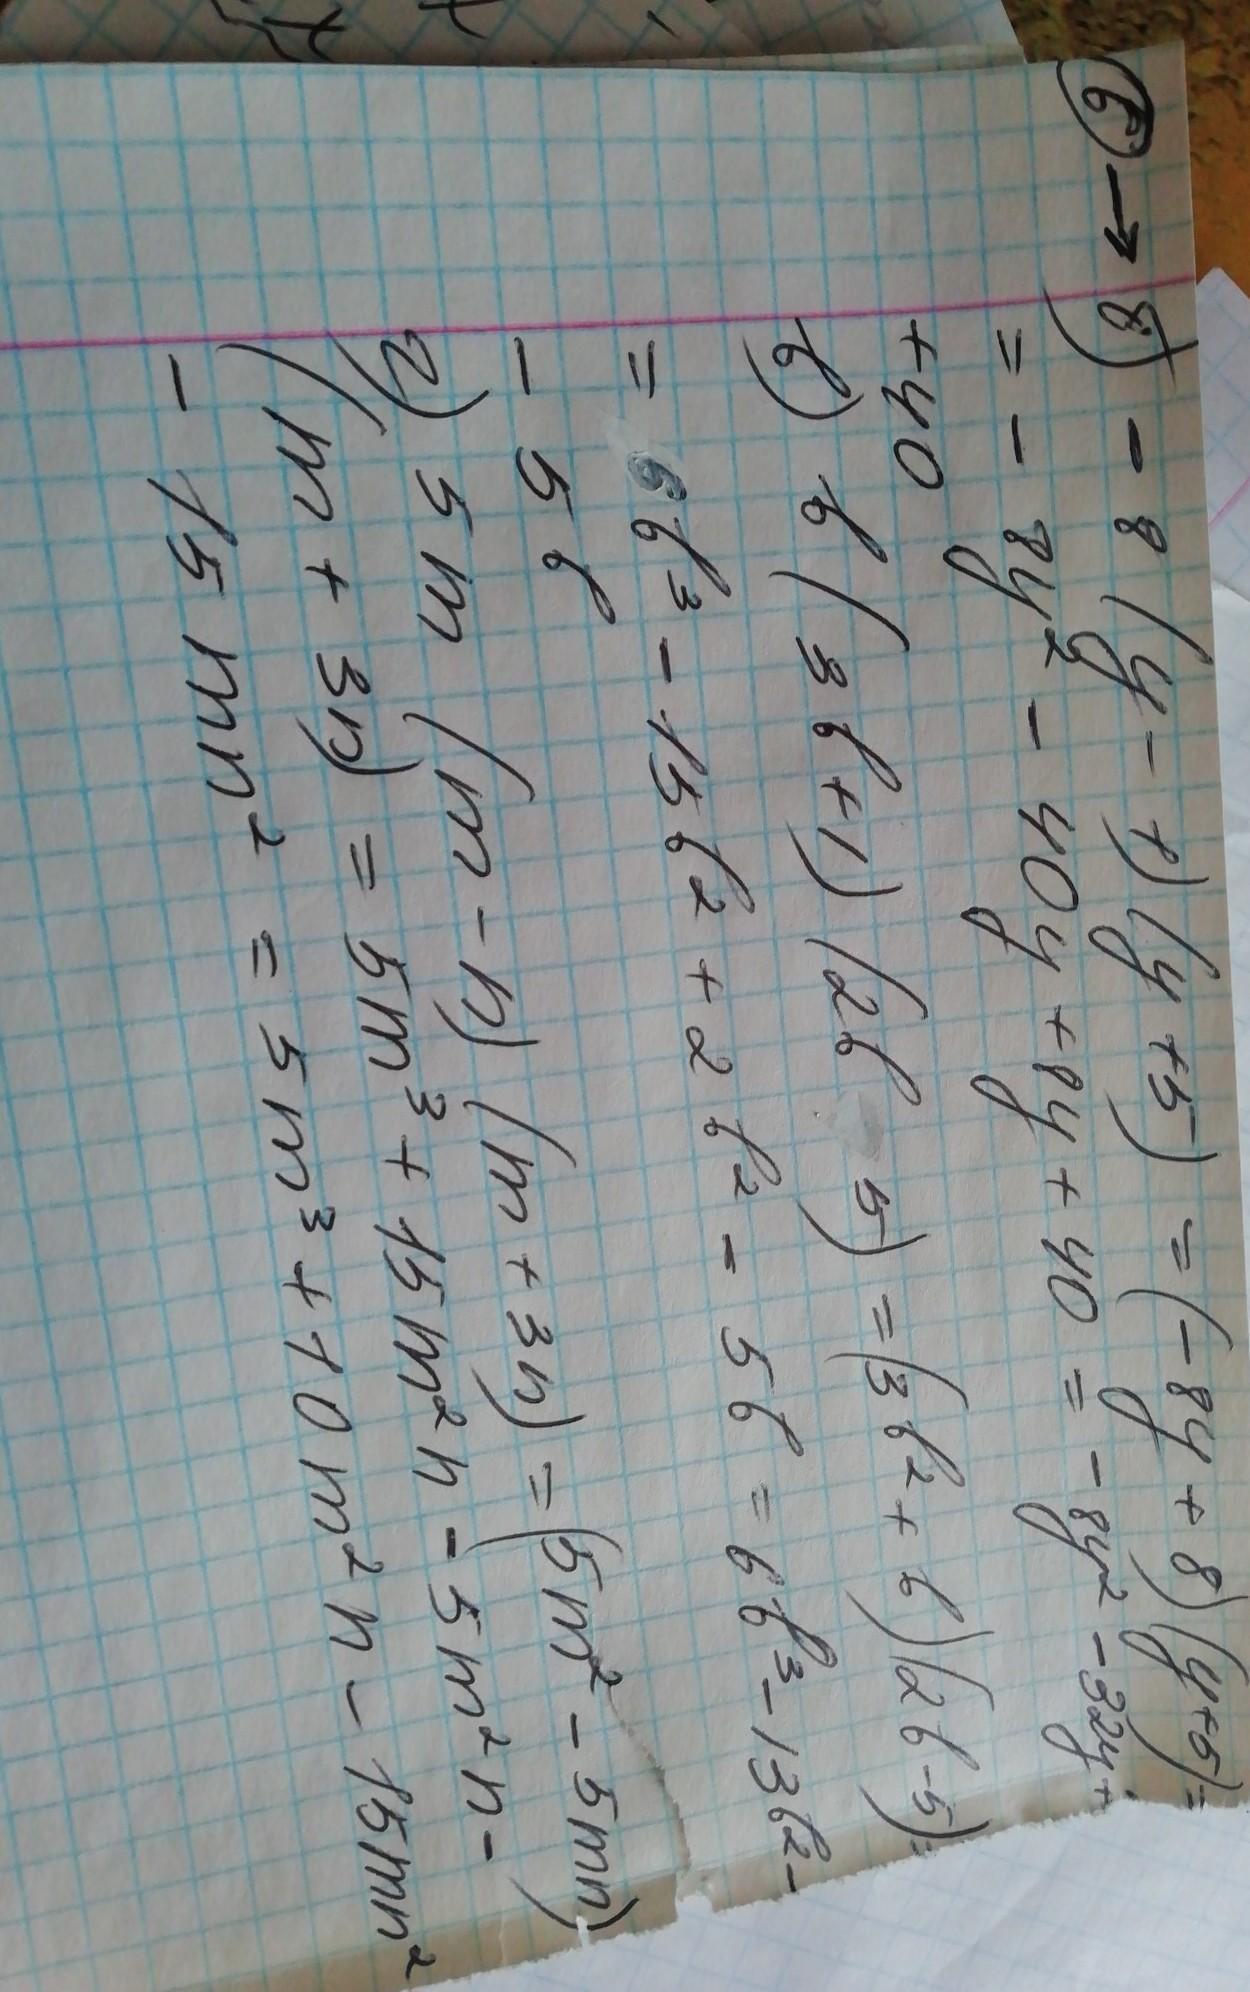 б → в) - 8 (y - 1) (y + 5) = (- 8y + 8) (y + 5) =
= - 8y² - 40y + 8y + 40 = - 8y² - 32y +
+ 40
б) b (3b + 1) (2b 5) = (3b² + b) (2b - 5) =
= 6b³ - 15b² + 2b² - 5b = 6b³ - 13b² -
- 5b
2) 5m (m - n) (m + 3n) = (5m² - 5mn)
(m + 3n) = 5m³ + 15m²n - 5m²n -
- 15mn² = 5m³ + 10m²n - 15mn²